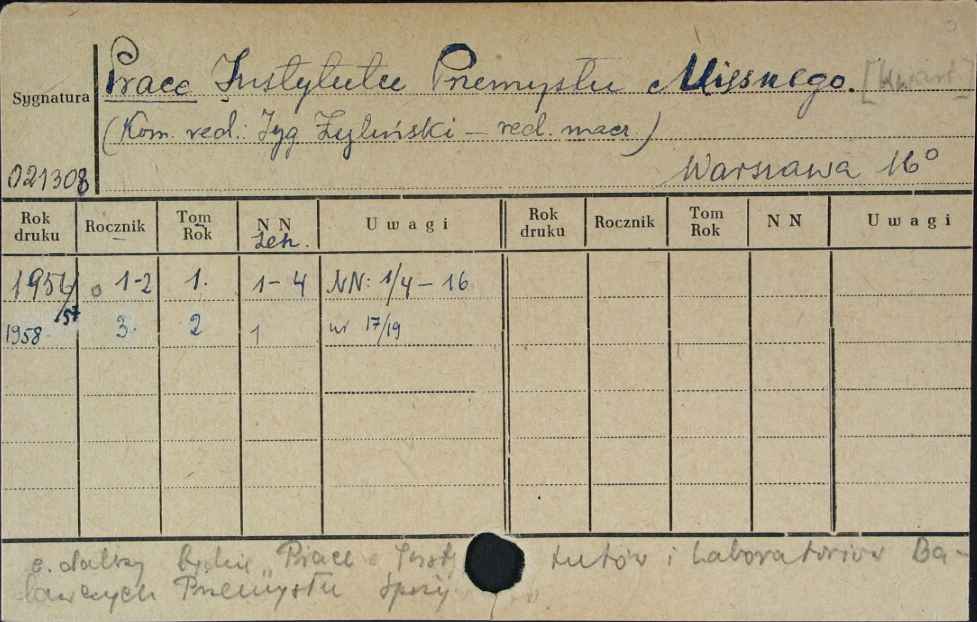 Prace Instytutu Przemysłu Mięsnego. [Kwart]
Sygnatura
(Kom. red.: Zyg Żyliński – red. nacz.)
021308
Warszawa 16°
Rok druku Rocznik Tom Rok N N Zesz. U w a g i Rok druku Rocznik Tom Rok N N U w a g i
1956/57 1-2 1. 1-4 NN: 1/4 – 16
1958 3. 2 1 nr 17/19
c. dalszy będzie „Prace Instytutów i Laboratoriów Ba-
dawczych Przemysłu Spoży